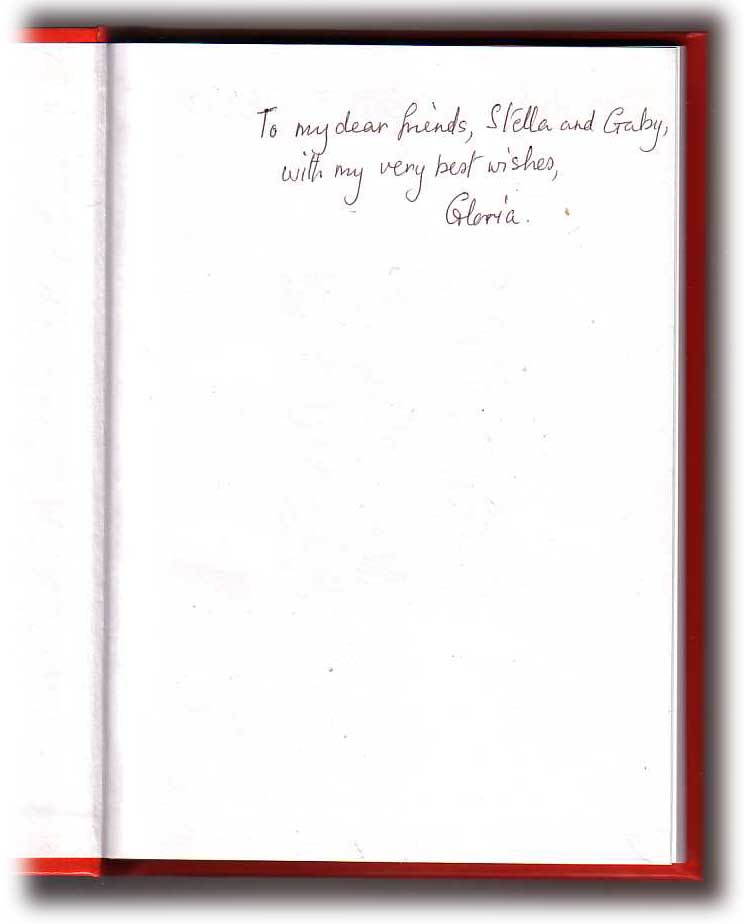 To my dear friends, Stella and Gaby,
with my very best wishes,
Gloria.